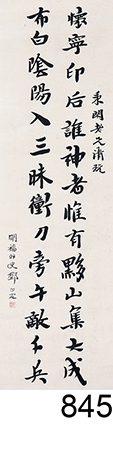 秉明老兄清玩
懷寧印后誰神者惟有黟山集大成
布白陰陽入三昧衝刀旁午敵千兵
845